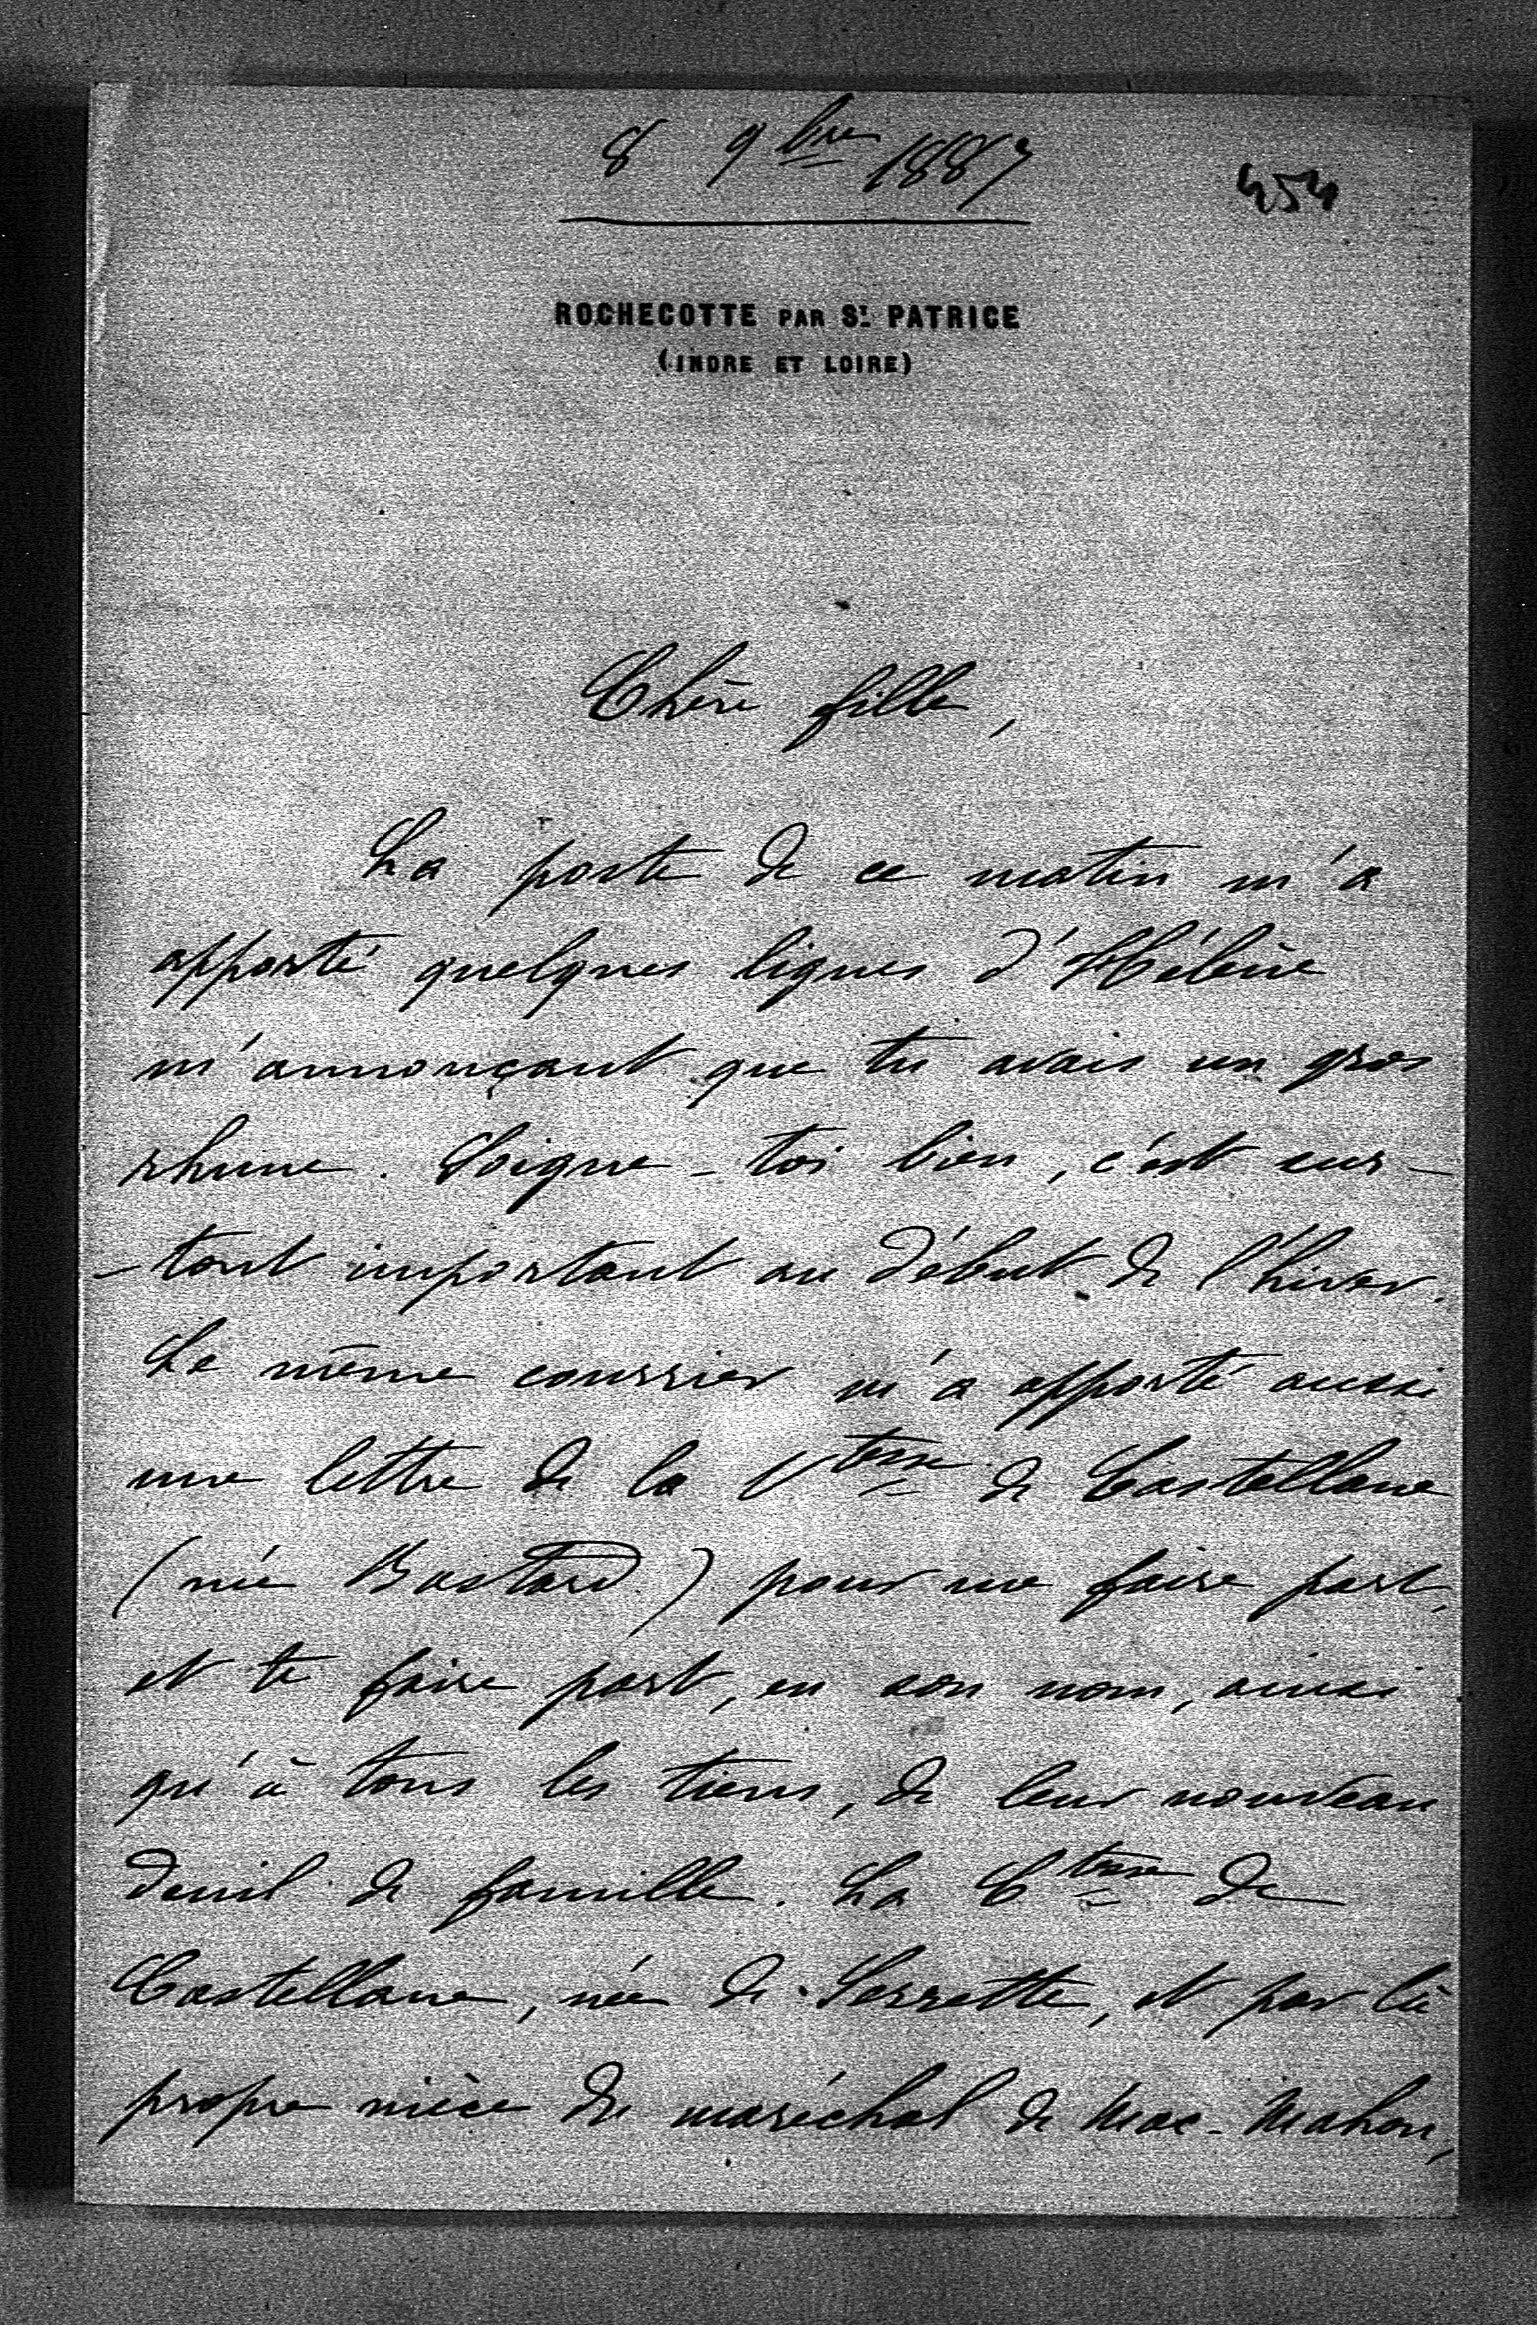 8 9bre 1887
454
ROCHECOTTE PAR ST. PATRICE
(INDRE ET LOIRE)
Chère fille,
La poste de ce matin m'a
apporté quelques lignes d'Hélène
m'annonçant que tu avais un gros
rhume. Soigne-toi bien, c'est sur-
-tout important au début de l'hiver.
Le même courrier m'a apporté aussi
une lettre de la Vtesse de Castellane
(née Bastard) pour me faire part,
et te faire part, en son nom, ainsi
qu'à tous les tiens, de leur nouveau
deuil de famille. La Ctesse de
Castellane, née de Serrette, et par là
propre nièce du maréchal de Mac-Mahon,